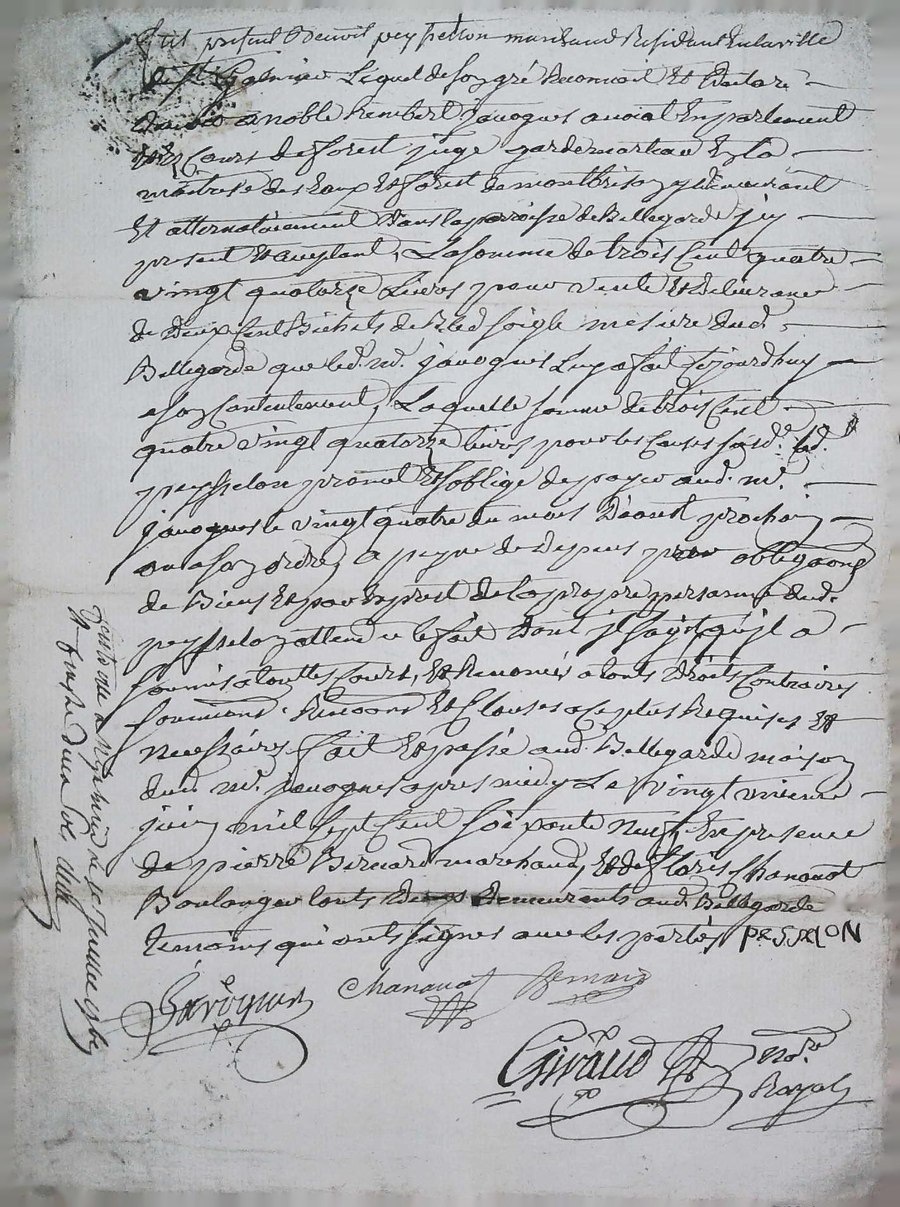 fut present Benoit peysselon marchand Residant En la ville
de St Galmier Lequel de son gré Reconnoit Et declare
devoir a noble Rembert Javogues avocat En parlement
Et ez Cours de forest juge gardemarteau En la
maitrise des Eaux Et forest de montbrison y demeurant
Et alternativement dans la paroisse de Bellegarde icy
present Et aceptant, La somme de trois Cent quatre
vingt quatorze Livres pour vente Et delivrance
de deux Cent Bichets de Bled soigle mesure dud.
Bellegarde que led. mr. javogues Luy a fait Cejourdhuy
a son Contentement, Laquelle somme de trois Cent
quatre vingt quatorze livres pour les Causes susd. led.
peysselon promet Et soblige de payer aud. mr.
javogues le vingt quatre du mois Daoust prochain
ou a son ordre, a peyne de depens par obligaons
de Biens Et par Exprest de la propre personne dud.
peysselon attendu le fait dont il sagit qu'il a
soumis a touttes Cours, Et Renoncé a touts droits Contraires
soumions. Renoaons Et Clauses a ce plus Requises Et
necessaires fait Et passé aud. Bellegarde maison
dud. mr. javogues apres midy Le vingt unieme
juin mil sept Cent soixante neuf, En presence
de pierre Bernard marchand, Et de Floris Chanavat
Boulanger touts deux demeurants aud. Bellegarde
temoins qui ont signés avec les parties PeSSeloN
Javogues Chanavat Bernard
Giraud nore
Royal
juillet